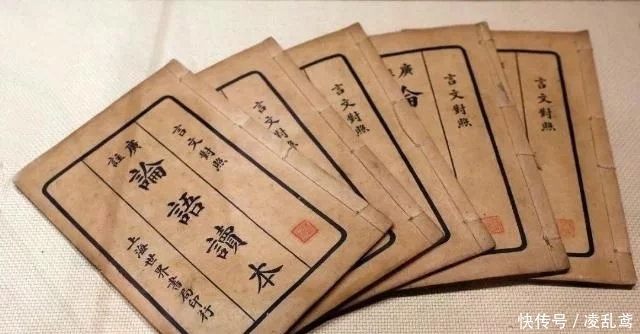 言文對照
廣註
論語讀本
上海世界書局印行
言文對
言文對照
言文對照
廣
言文對照
快传号／凌乱鸢